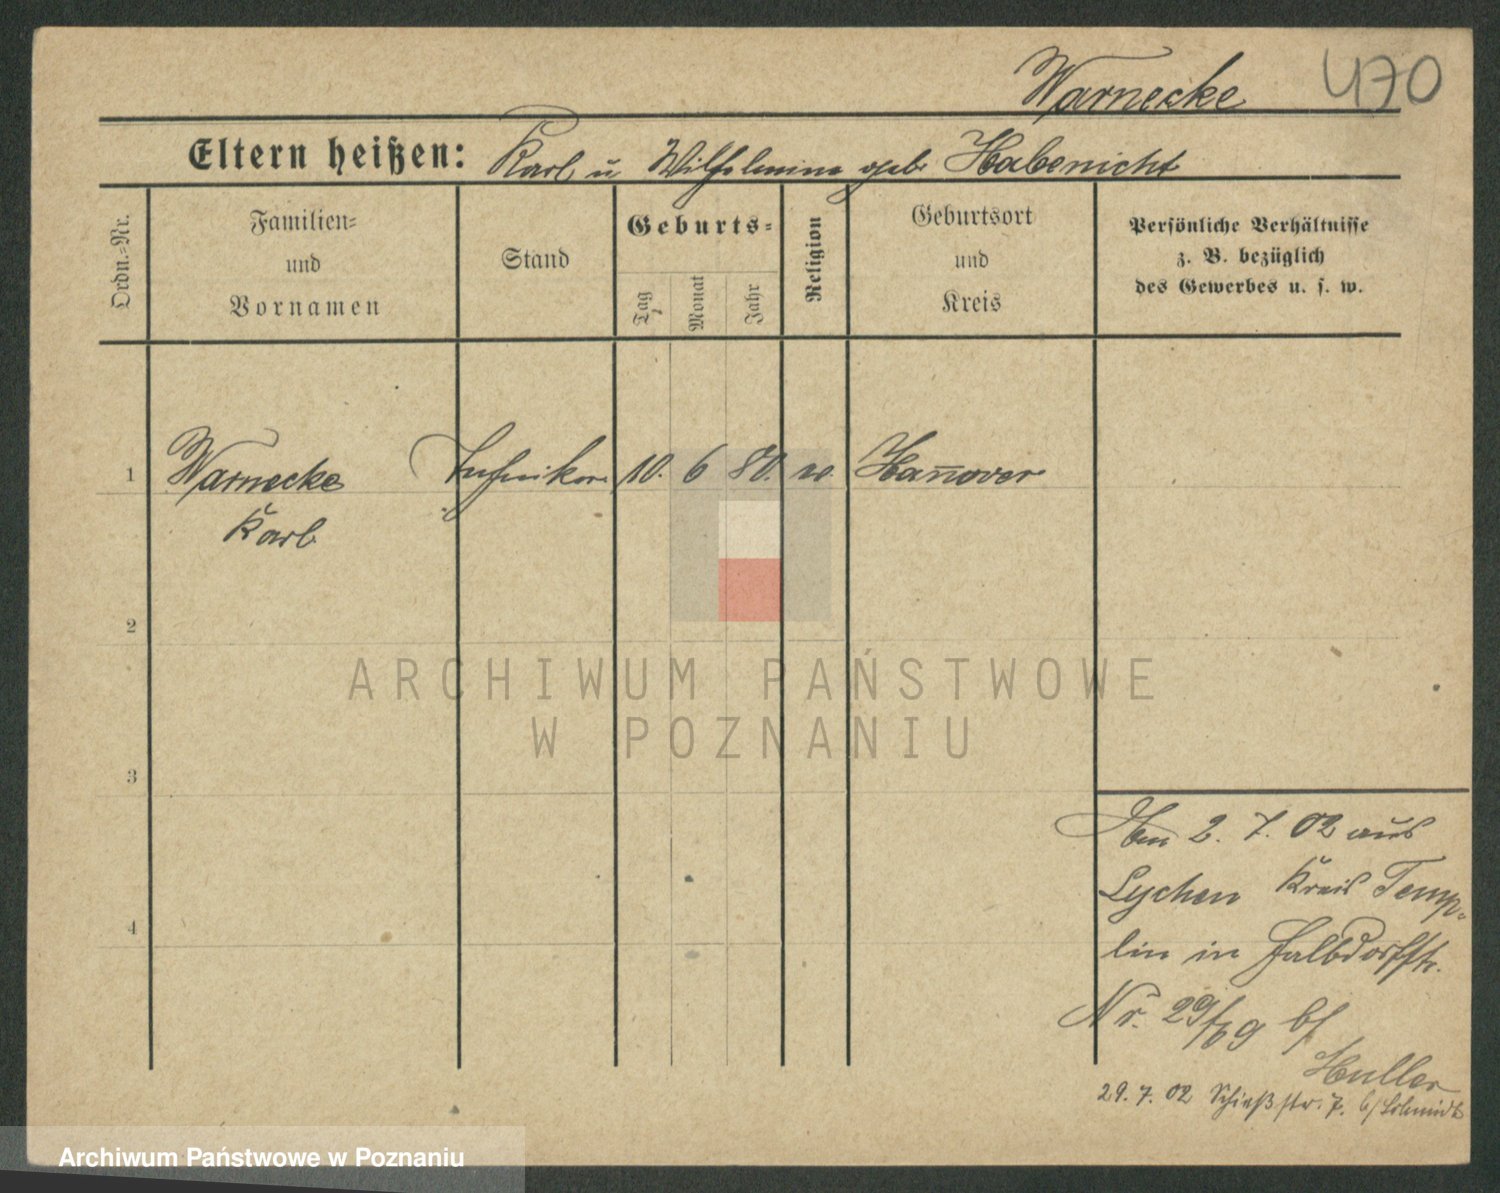 Warnecke 470
Eltern heißen: Karl u Wilhelmine geb. Habenicht
Ordn.-Nr.
Familien-
und
Vornamen
Stand
Geburts-
Tag
Monat
Jahr
Religion
Geburtsort
und
Kreis
Persönliche Verhältnisse
z. B. bezüglich
des Gewerbes u. s. w.
1 Warnecke Techniker 10. 6 80. Hannover
Karl
2
ARCHIWUM PAŃSTWOWE
W POZNANIU
3
Am 2. 7. 02 aus
Lychen Kreis Temp-
lin in
4
Nr. 29/69 b/
Huller
29. 7. 02 Schießstr. 7. b/ Schmidt
Archiwum Państwowe w Poznaniu